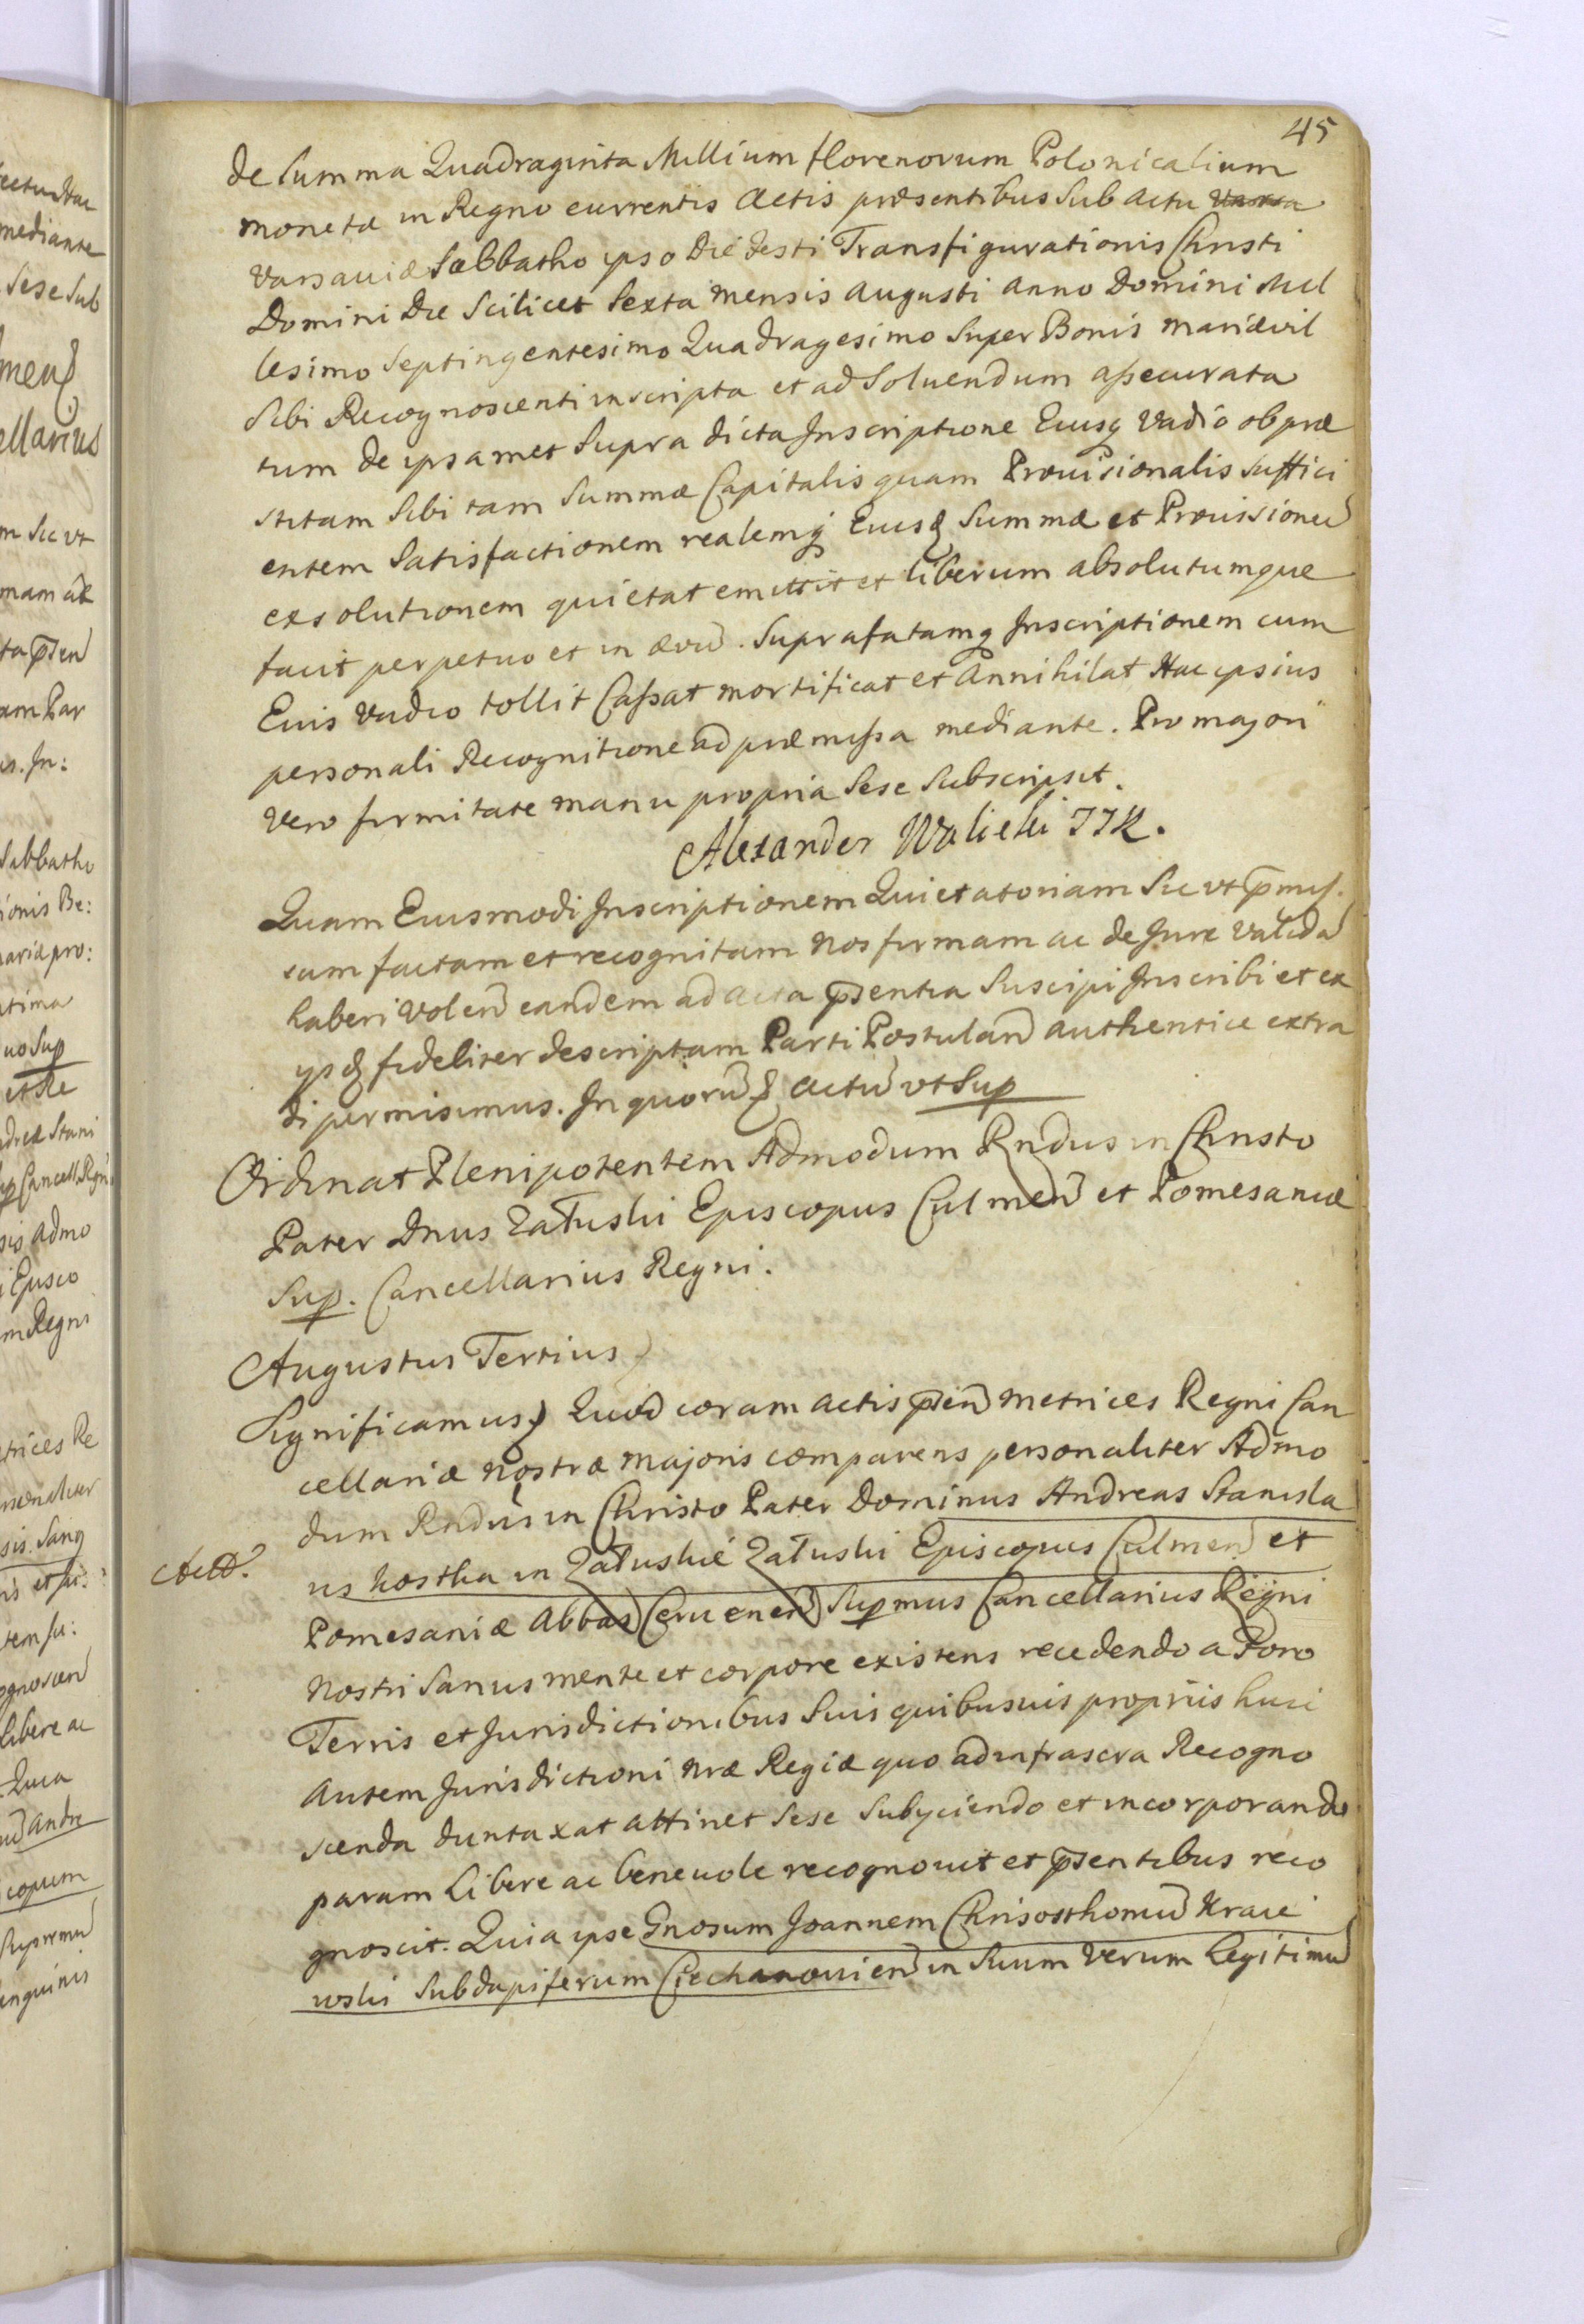 45
de Summa Quadraginta Millium florenorum Polonicalium
monetæ in Regno currentis Actis præsentibus Sub Actu
Varsaviæ Sabbatho ipso Die Festi Transfigurationis Christi
Domini Die Scilicet Sexta mensis Augusti Anno Domini Mil
lesimo Septingentesimo Quadragesimo Super Bonis Mariævil
Sibi Recognoscenti inscripta et ad Solvendum assecurata
tum de ipsamet Supra dicta Inscriptione Eiusq Vadio ob præ
stitam Sibi tam Summæ Capitalis quam Provisionalis suffici
entem Satisfactionem realemq Eiusd Summæ et Provisionū
exsolutionem quietat emittit et liberum absolutumque
facit perpetuo et in ævū. Suprafatamq Inscriptionem cum
Euis Vadio tollit Cassat mortificat et Annihilat Hac ipsius
personali Recognitione ad præmissa mediante. Pro majori
vero firmitate manu propria Sese Subscripsit.
Alexander Walicki JJK.
Quam Eiusmodi Inscriptionem Quietatoriam Sic vt p̄mis.
sam factam et recognitam Nos firmam ac de Jure Validā
haberi Volen̄ eandem ad Acta p̄sentia Suscipi Inscribi et ex
ijsd fideliter descriptam Parti Postulan̄ authentice extra
di permisimus. In quorū d̄ Actū vt Sup
Ordinat Plenipotentem Admodum Rndus in Christo
Pater Dnus Załuski Episcopus Culmen̄ et Pomesaniæ
Sup. Cancellarius Regni.
Augustus Tertius
Significamus) Quod coram Actis p̄sen̄ Metrices Regni Can
cellariæ Nostræ Majoris comparens personaliter Admo
dum Rndus in Christo Pater Dominus Andreas Stanisla
Actt.
us Kostka in Załuskie Załuski Episcopus Culmen̄ et
Pomesaniæ Abbas Czruenen̄ Supmus Cancellarius Regni
Nostri Sanus mente et corpore existens recedendo a Foro
Terris et Jurisdictionibus Suis quibusuis proprijs huic
Autem Jurisdictioni Nræ Regiæ quo ad infrascra Recogno
scenda duntaxat attinet Sese Subijciendo et incorporando
param Libere ac beneuole recognouit et p̄sentibus reco
gnoscit. Quia ipse Gnosum Joannem Chrisosthomū Kraie
wski Subdapiferum Ciechanovien̄ in Suum Verum Legitimū